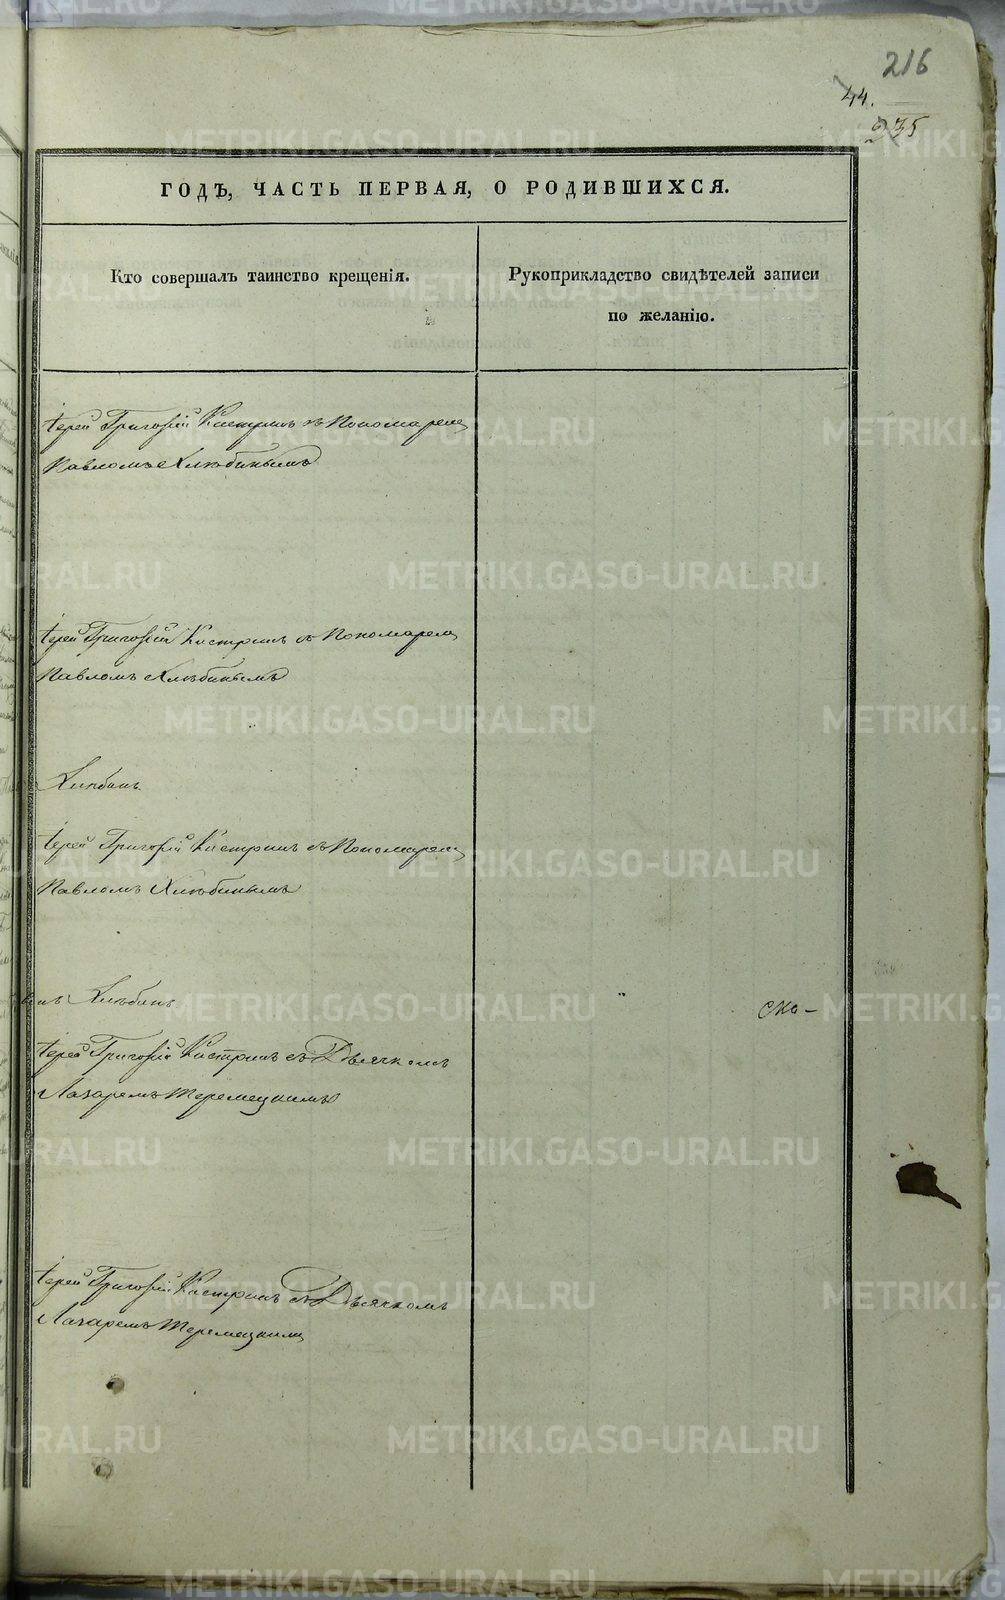 216
44.
235
ГОДЪ, ЧАСТЬ ПЕРВАЯ, О РОДИВШИХСЯ.
Кто совершалъ таинство крещенія.
Рукоприкладство свидѣтелей записи
по желанію.
Іерей Григорій Кастринъ съ Пономаремъ
Павломъ Хлѣбинымъ
Іерей Григорій Кастринъ съ Пономаремъ
Павломъ Хлѣбинымъ
Хлѣбинъ
Іерей Григорій Кастринъ съ Пономаремъ
Павломъ Хлѣбинымъ
Хлѣбинъ
ско-
Іерей Григорій Кастринъ съ Дьячкомъ
Лазаремъ Теремецкимъ
Іерей Григорій Кастринъ съ Дьячкомъ
Лазаремъ Теремецкимъ
METRIKI.GASO-URAL.RU